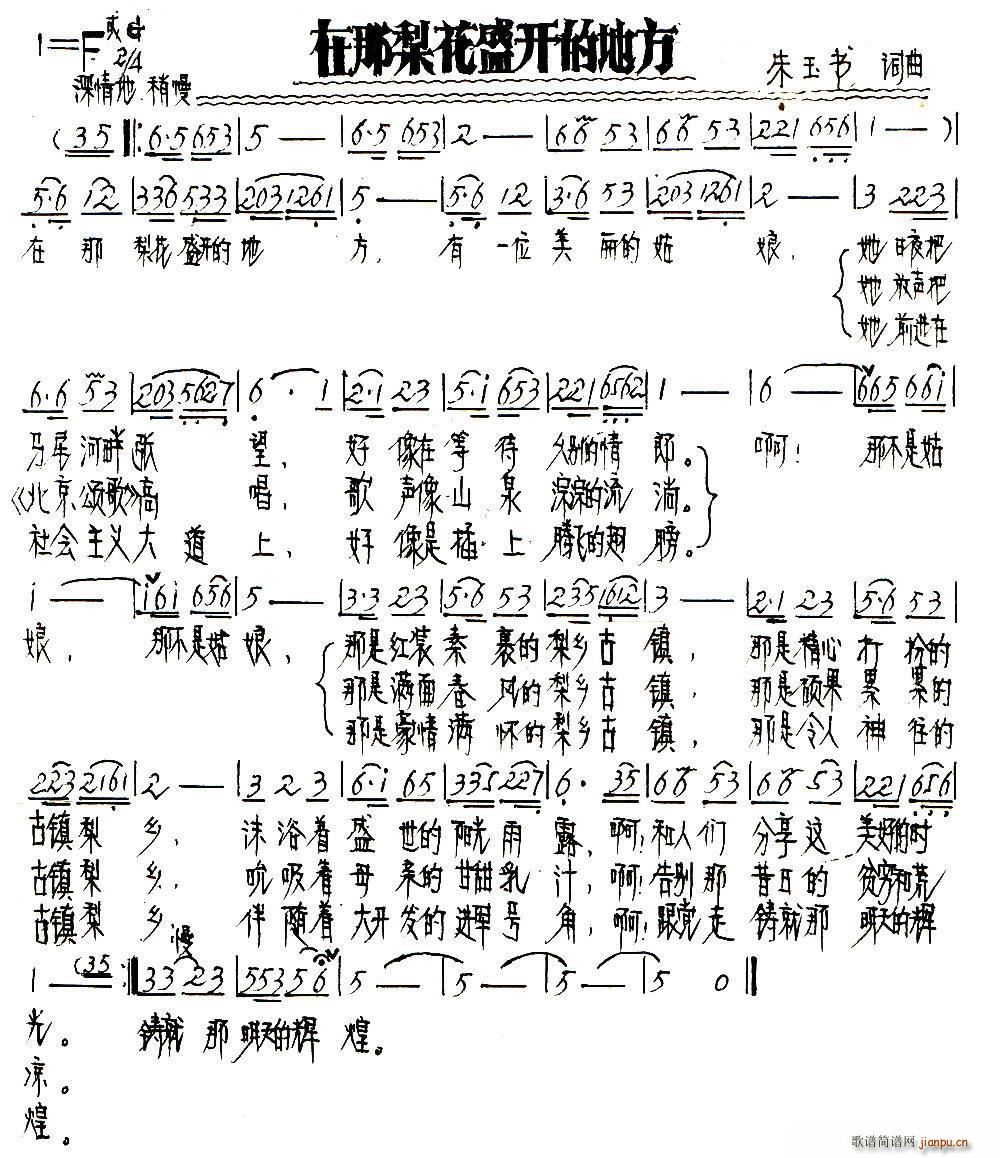 在那梨花盛开的地方
1=F或G 2/4
朱玉书 词曲
深情地 稍慢
(35 ‖: 6·5 653 | 5 — | 6·5 653 | 2 — | 66 53 | 66 53 | 221 656 | 1 — ) |
5·6 12 | 336 533 | 203 1261 | 5 — | 5·6 12 | 3·6 53 | 203 1261 | 2 — | 3 223 |
在那 梨花盛开的地 方, 有一位美丽的姑 娘, 她日夜把
她放声把
她前进在
6·6 53 | 203 5627 | 6 · 1 | 2·1 23 | 5·i 653 | 221 6562 | 1 — | 6 — | 665 66i |
马尾河畔张 望, 好像在等待 久别的情郎。 啊! 那不是姑
《北京颂歌》高 唱, 歌声像山泉 淙淙的流淌。
社会主义大道上, 好像是插上 腾飞的翅膀。
i — | i6i 656 | 5 — | 3·3 23 | 5·6 53 | 235 1612 | 3 — | 2·1 23 | 5·6 53 |
娘, 那不是姑娘, 那是红装素裹的梨乡古镇, 那是精心打扮的
那是满面春风的梨乡古镇, 那是硕果累累的
那是豪情满怀的梨乡古镇, 那是令人神往的
223 2161 | 2 — | 3 2 3 | 6·i 65 | 335 227 | 6· 35 | 66 53 | 66 53 | 221 656 |
古镇梨乡, 沐浴着盛世的阳光雨露, 啊! 和人们分享这美好的时
古镇梨乡, 吮吸着母亲的甘甜乳汁, 啊! 告别那昔日的贫穷和荒
古镇梨乡, 伴随着大开发的进军号角, 啊! 跟党走铸就那明天的辉
1 — (35 :‖ 慢 33 23 | 5535 6 | 5 — | 5 — | 5 — | 5 0 ‖
光。 铸就那明天的辉煌。
凉。
煌。
歌谱简谱网 jianpu.cn